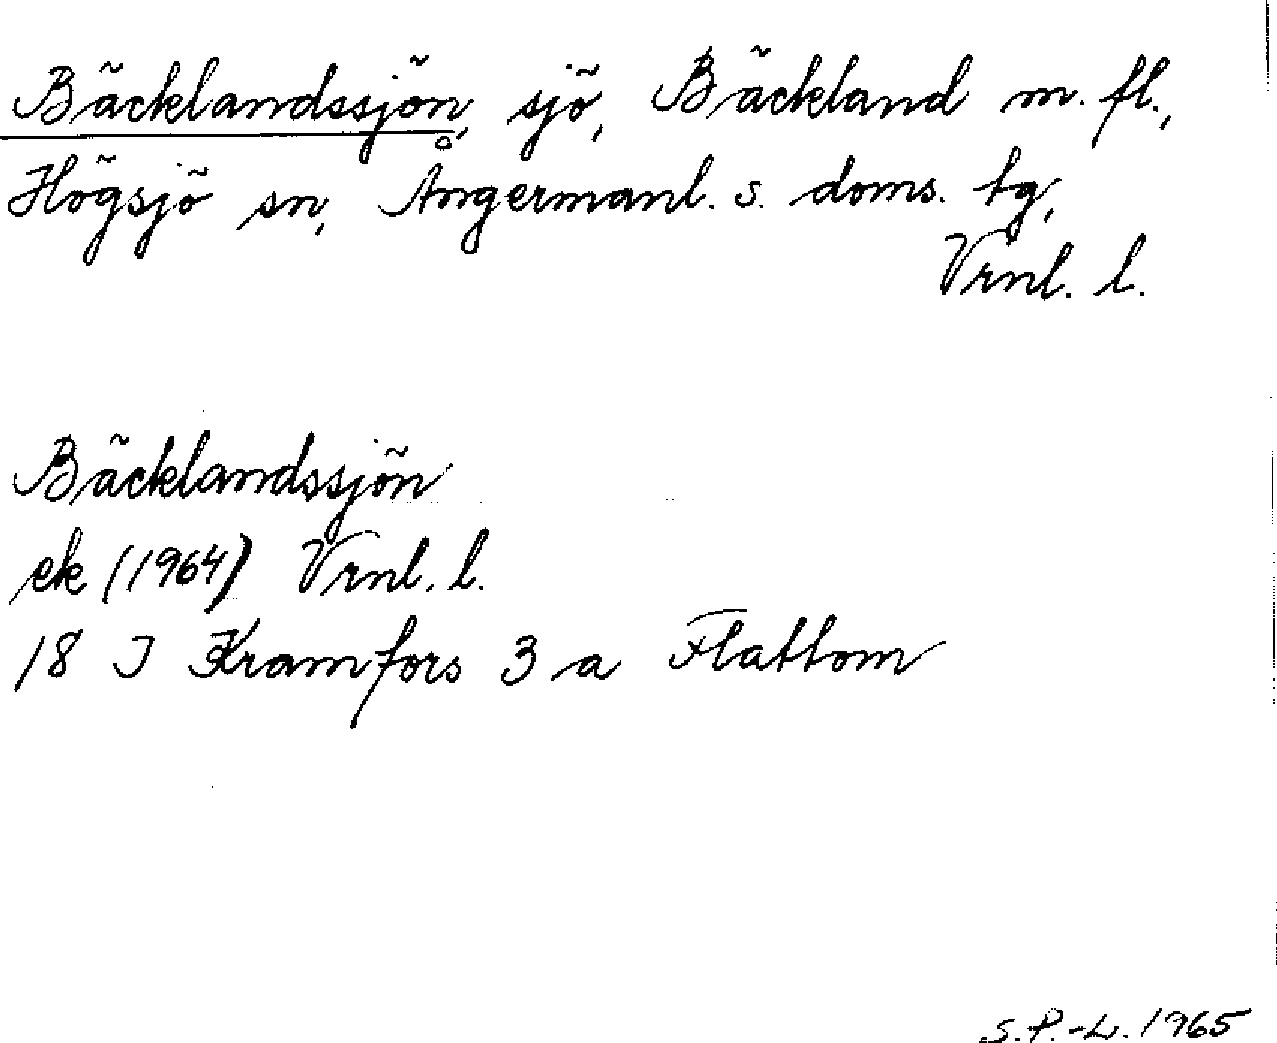 Bäcklandssjön, sjö, Bäckland m. fl.,
Högsjö sn, Ångermanl. s. doms. tg,
Vrnl. l.
Bäcklandssjön
ek (1964) Vrnl. l.
18 I Kramfors 3 a Flattom
S.P.-L. 1965